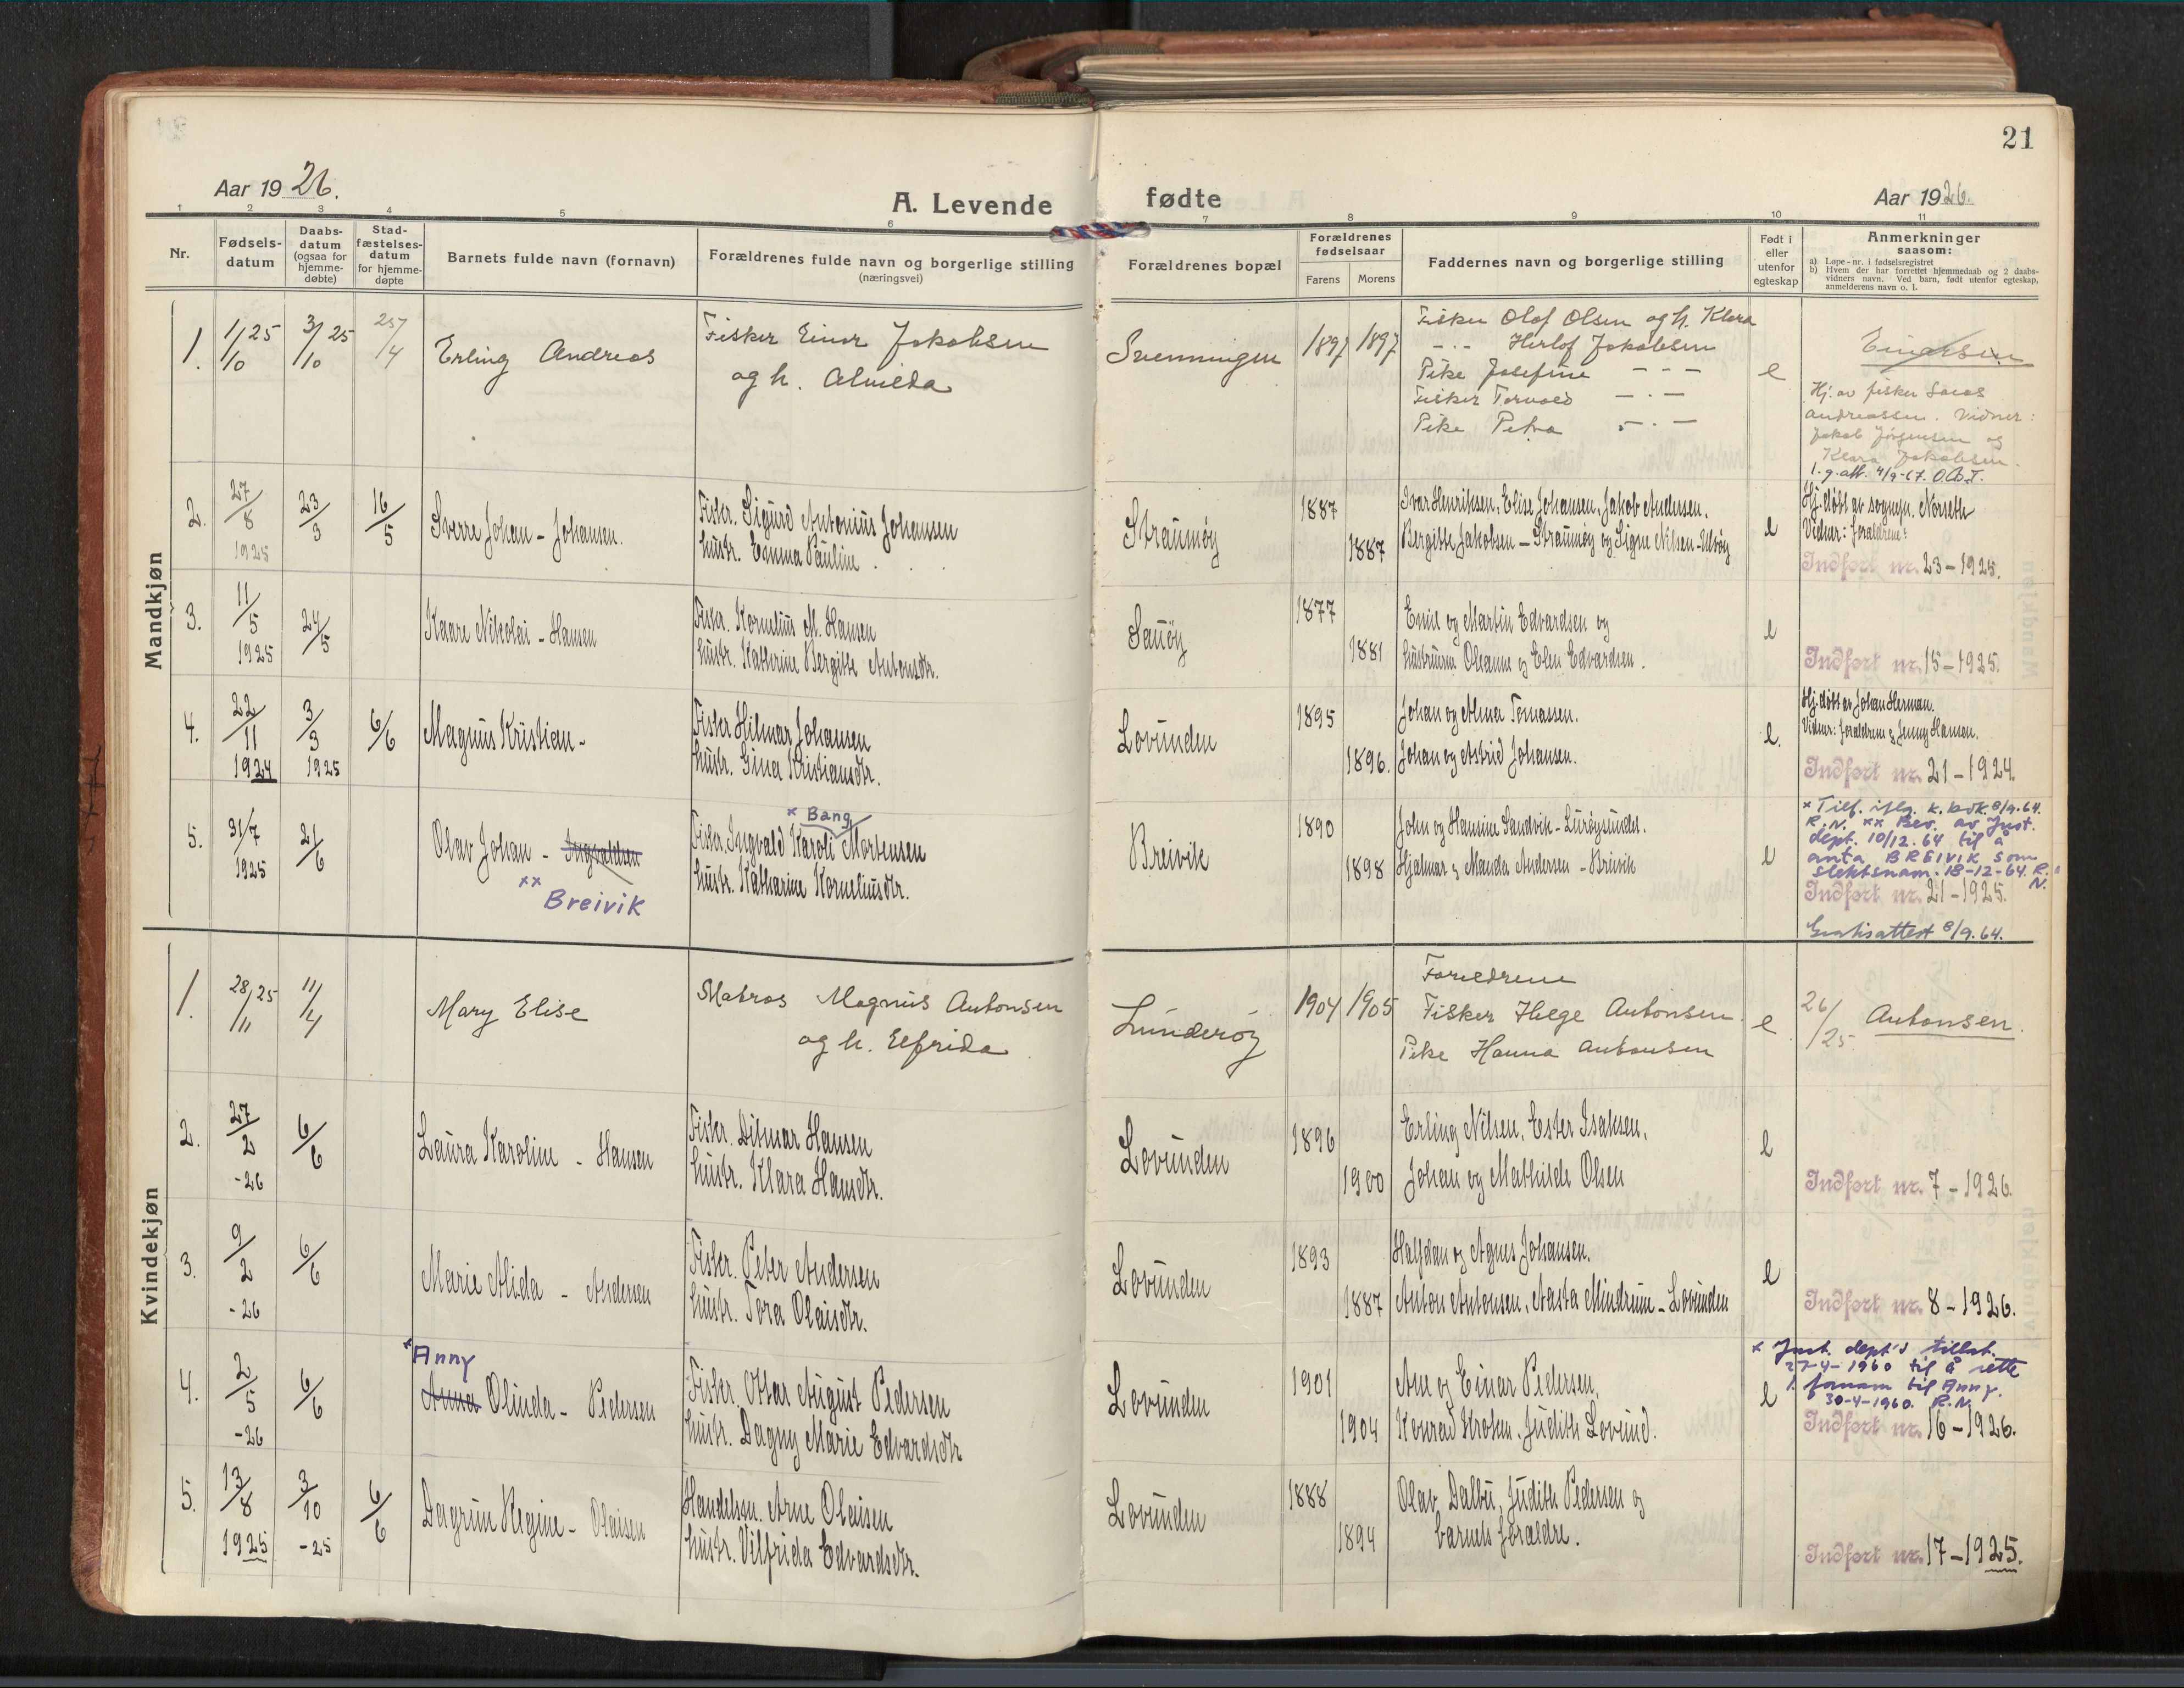 21
Aar 1926.
A. Levende
fødte
Aar 1926.
1 2 3 4 5 6 7 8 9 10 11
Nr.
Fødsels-
datum
Daabs-
datum
(ogsaa for
hjemme-
døbte)
Stad-
fæstelses-
datum
for hjemme-
døpte
Barnets fulde navn (fornavn)
Forældrenes fulde navn og borgerlige stilling
(næringsvei)
Forældrenes bopæl
Forældrenes
fødselsaar
Farens
Morens
Faddernes navn og borgerlige stilling
Født i
eller
utenfor
egteskap
Anmerkninger
saasom:
a) Løpe-nr. i fødselsregistret
b) Hvem der har forrettet hjemmedaab og 2 daabs-
vidners navn. Ved barn, født utenfor egteskap,
anmelderens navn o. l.
Mandkjøn
1.
1/10 25
3/10 25
25/4
Erling Andreas
Fisker Einar Jakobsen
og h. Alvilda
Svenningen
1897
1897
Fisker Olof Olsen og h. Klara
-"- Herlof Jakobsen
Pike Josefine - - -
Fisker Torvald - " -
Pike Petra - " -
e
Einarsen
Hj. av fisker
Andreassen. Vidner:
Jakob Jørgensen og
Klara Jakobsen.
1.g.att. 4/9-67. O.B.T.
2.
27/8
1925
23/3
16/5
Sverre Johan - Johansen.
Fiskr. Sigurd Antonius Johansen
hustr. Emma Pauline.
Straumøy
1887
1887
Ivar Henriksen, Elise Johansen, Jakob Andersen,
Bergitte Jakobsen - Straumøy og Signe Nilsen - Ulvøy
e
Hj. døbt av sognepr. Norseth
Vidner: foraldrene:
Indført nr. 23 - 1925.
3.
11/5
1925
24/5
Kaare Nikolai - Hansen
Fiskr. Kornelius M. Hansen
hustr. Kathrine Bergitte Antonsdtr.
Sauøy
1877
1881
Emil og Martin Edvardsen og
hustruerne Oleanne og Elen Edvardsen.
e
Indført nr. 15 - 1925.
4.
22/11
1924
3/3
1925
6/6
Magnus Kristian -
Fisker Hilmar Johansen
hustr. Gina Kristiansdtr.
Lovunden
1895
1896.
Johan og Alma Tomassen.
Johan og Astrid Johansen.
e.
Hj. døbt av Johan Herman.
Vidner: foraldrene og Jenny Hansen.
Indført nr. 21 - 1924.
5.
31/7
1925
21/6
Olav Johan - Ingvaldsen
xx Breivik
x Bang
Fiskr. Ingvald Karoli Mortensen
hustr. Katharine Korneliusdtr.
Breivik
1890
1898
John og Hansine Sandvik - Lurøysundet.
Hjalmar og Manda Andersen - Breivik
e
x Tilf. iflg. k. bok 8/9.64.
R.N. xx Bev. av Just.
dept. 10/12.64 til å
anta BREIVIK som
slektsnavn. 18-12-64. R.
N.
Indført nr. 21 - 1925.
Gratisattest 8/9.64.
Kvindekjøn
1.
28/11 25
11/4
Mary Elise
Matros Magnus Antonsen
og h. Elfrida
Lunderøy
1904
1905
Foreldrene
Fisker Helge Antonsen
Pike Hanna Antonsen
e
26/25
Antonsen.
2.
27/2
-26
6/6
Laura Karoline - Hansen
Fiskr. Ditmar Hansen
hustr. Klara Hansdtr.
Lovunden
1896
1900
Erling Nilsen, Ester Isaksen,
Johan og Mathilde Olsen
e
Indført nr. 7 - 1926.
3.
9/2
-26
6/6
Marie Alida - Andersen
Fiskr. Peter Andersen
hustr. Tora Olaisdtr.
Lovunden
1893
1887
Halfdan og Agnes Johansen.
Anton Antonsen, Aasta Mindrum - Lovunden
e
Indført nr. 8 - 1926.
4.
2/5
-26
6/6
x Anny
Anna Olinda - Pedersen
Fiskr. Ottar August Pedersen
hustr. Dagny Marie Edvardsdtr
Lovunden
1901
1904
Arne og Einar Pedersen,
Konrad Kroken, Judith Lovund.
e
x Just. dept's tillat.
27-4-1960 til å rette
1. fornavn til Anny.
30-4-1960. R.N.
Indført nr. 16 - 1926.
5.
13/8
1925
3/10
-25
6/6
Dagrun Regine - Olaisen
Handelsm. Arne Olaisen
hustr. Vilfrida Edvardsdtr.
Lovunden
1888
1894
Olav Dalbu, Judith Pedersen og
barnets foraldre.
Indført nr. 17 - 1925.